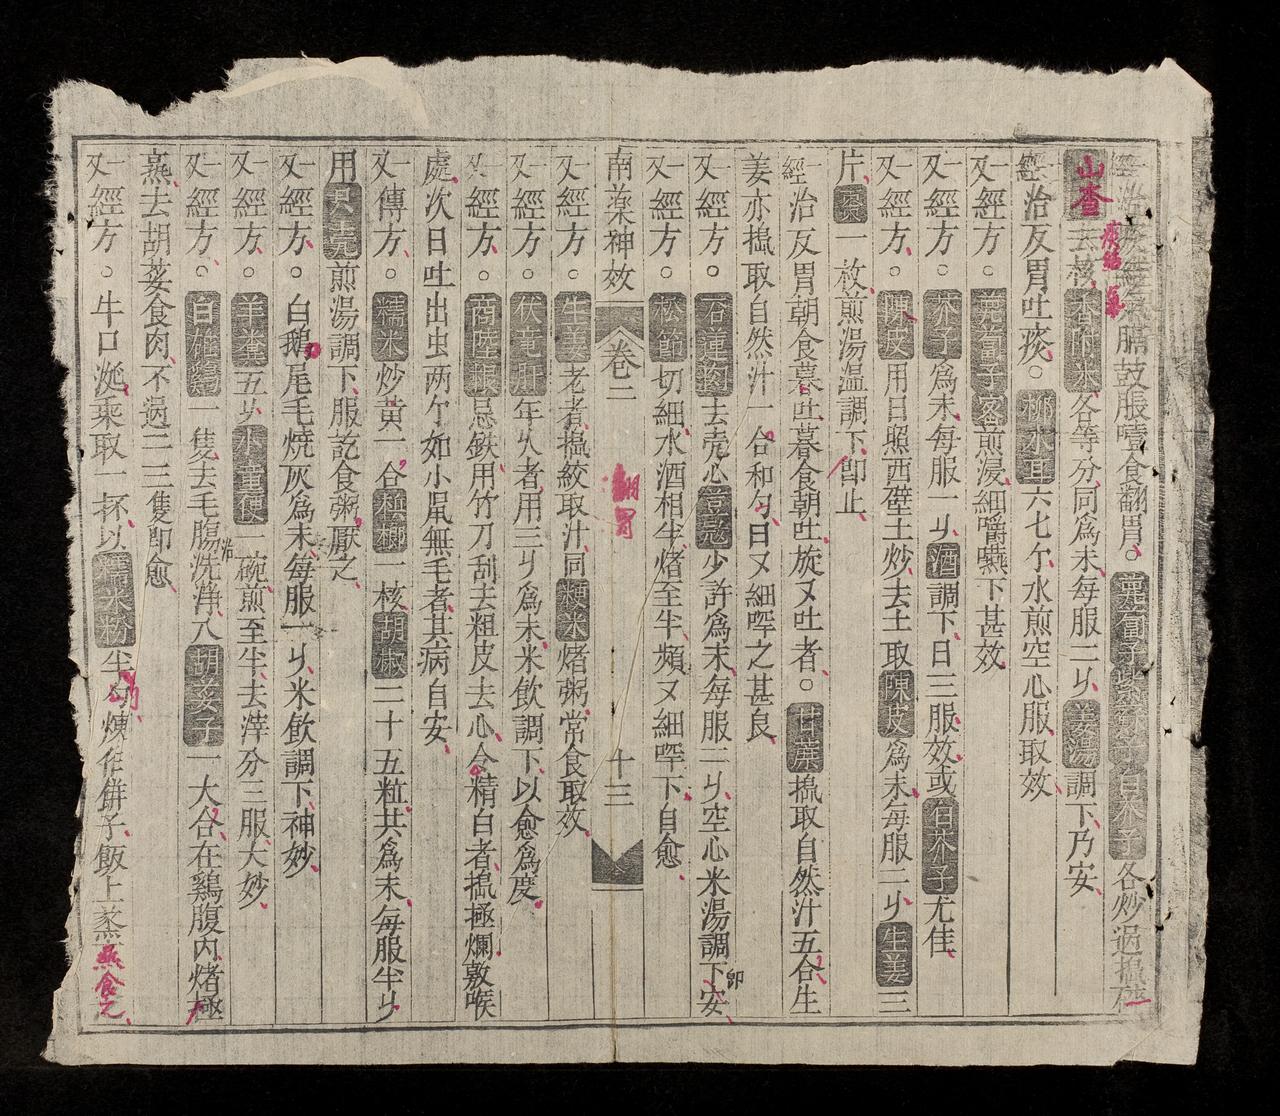 一經治痰結氣膈鼓脹噎食翻胃。萊菔子紫蘇子白芥子各炒過搗碎
山查去核香附米各等分同為末每服二𠂎姜湯調下乃安
一經治反胃吐痰。柳木耳六七个水煎空心服取效
又一經方。萊菔子蜜煎浸細嚼嚥下甚效
又一經方。芥子為末每服一𠂎酒調下日三服效或白芥子尤佳
又一經方。陳皮用日照西壁土炒去土取陳皮為末每服二𠂎生姜三
片棗一枚煎湯溫調下即止
一經治反胃朝食暮吐暮食朝吐旋又吐者。甘蔗搗取自然汁五合生
姜亦搗取自然汁一合和勻日又細㖕之甚良
又一經方。石蓮肉去壳心荳蔻少許為末每服二𠂎空心米湯調下即安
又一經方。松節切細水酒相半㷟至半頻又細㖕下自愈
南藥神效 卷二 翻胃 十三
又一經方。生姜老者搵絞取汁同粳米㷟粥常食取效
又一經方。伏竜肝年久者用三𠂎為末米飲調下以愈為度
又一經方。商陸根忌鉄用竹刀刮去粗皮去心令精白者搗極爛敷喉
處次日吐出虫两个如小鼠無毛者其病自安
又一傳方。糯米炒黃一合梹榔一核胡椒三十五粒共為末每服半𠂎
用 壳煎湯調下服訖食粥厭之
又一經方。白鵝尾毛燒灰為末每服一𠂎米飲調下神妙
又一經方。羊糞五𠂎水童便一碗煎至半去滓分三服大妙
又一經方。白雄鷄一隻去毛腸洗淨八胡荽子一大合在鷄腹內㷟極
熟去胡荽食肉不過二三隻即愈
又一經方。牛口涎乘取一杯以糯米粉半 煉作餅子飯上蒸熟食之